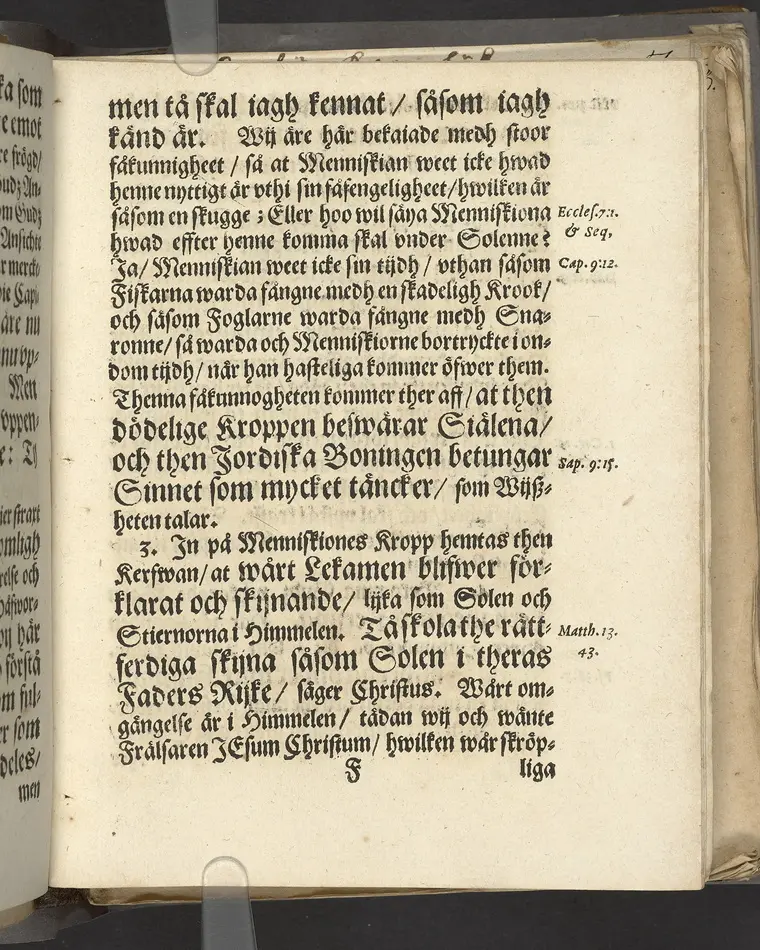 men tå skal iagh kennat / såsom iagh
känd är. Wij äre här bekaiade medh stoor
fåkunnigheet / så at Menniskian weet icke hwad
henne nyttigt är vthi sin fåfengeligheet / hwilken är
såsom en skugge ; Eller hoo wil säya Menniskiona
Eccles. 7:1.
hwad effter henne komma skal vnder Solenne?
& Seq,
Ja / Menniskian weet icke sin tijdh / vthan såsom
Cap. 9:12.
Fiskarna warda fångne medh en skadeligh Krook /
och såsom Foglarne warda fångne medh Sna-
ronne / så warda och Menniskiorne bortryckte i on-
dom tijdh / när han hasteliga kommer öfwer them.
Thenna fåkunnogheten kommer ther aff / at then
dödelige Kroppen beswärar Siälena /
och then Jordiska Boningen betungar
Sap. 9:15.
Sinnet som mycket täncker / som Wijß-
heten talar.
3. In på Menniskiones Kropp hemtas then
Kerfwan / at wårt Lekamen blifwer för-
klarat och skijnande / lijka som Solen och
Stiernorna i Himmelen. Tå skola the rätt-
Matth. 13.
43.
ferdiga skijna såsom Solen i theras
Faders Rijke / säger Christus. Wårt om-
gängelse är i Himmelen / tädan wij och wänte
Frälsaren JEsum Christum / hwilken wår skröp-
F
liga
ka som
e emot
re frögd/
om Gudz
Ansichte
äre nu
Men
er strart
relse och
wij här
förstå
om ful-
er som
deles/
men